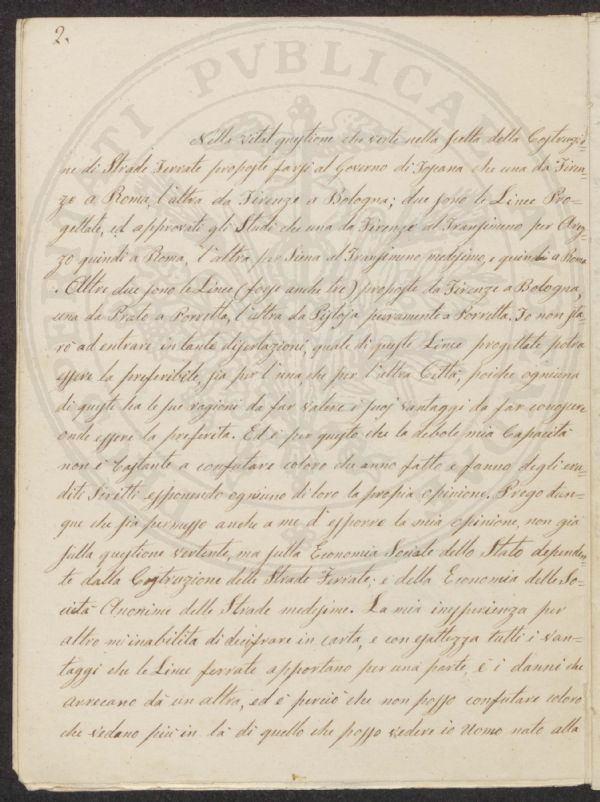 2.
Nella vital questione che verte nella scelta della Costruzio-
ne di Strade Ferrate proposte farsi al Governo di Toscana che una da Firen-
ze a Roma, l'altra da Firenze a Bologna; due sono le Linee Pro-
gettate, ed approvati gli Studi che una da Firenze al Trasimeno per Arez-
zo quindi a Roma, l'altra per Siena al Trasimeno medesimo, e quindi a Roma
. Altre due sono le Linee (forse anche tre) proposte da Firenze a Bologna,
una da Prato a Porretta, l'altra da Pistoja puramente a Porretta. Io non sta
rò ad entrare in tante disertazioni, quale di queste Linee progettate potrà
essere la preferibile, sia per l'una, che per l'altra Città, poiche ogniuna
di queste ha le sue ragioni da far valere e suoi vantaggi da far conoscere
onde essere la preferita. Ed è per questo che la debole mia Capacità
non è bastante a confutare coloro che anno fatto e fanno degli eru-
diti Scritti esponendo ogniuno di loro la propia opinione. Prego dun-
que che sia permesso anche a me d'esporre la mia opinione, non già
sulla questione vertente, ma sulla Economia Sociale dello Stato dependen-
te dalla Costruzione delle Strade Ferrate; e della Economia delle So-
cietà Anonime delle Strade medesime. La mia inesperienza per
altro mi inabilita di decifrare in carta, e con esattezza tutti i van-
taggi che le Linee ferrate apportano per una parte, e i danni che
arrecano da un altra, ed è perciò che non posso confutare coloro
che vedano più in là di quello che posso vedere io Uomo nato alla
PVBLICA